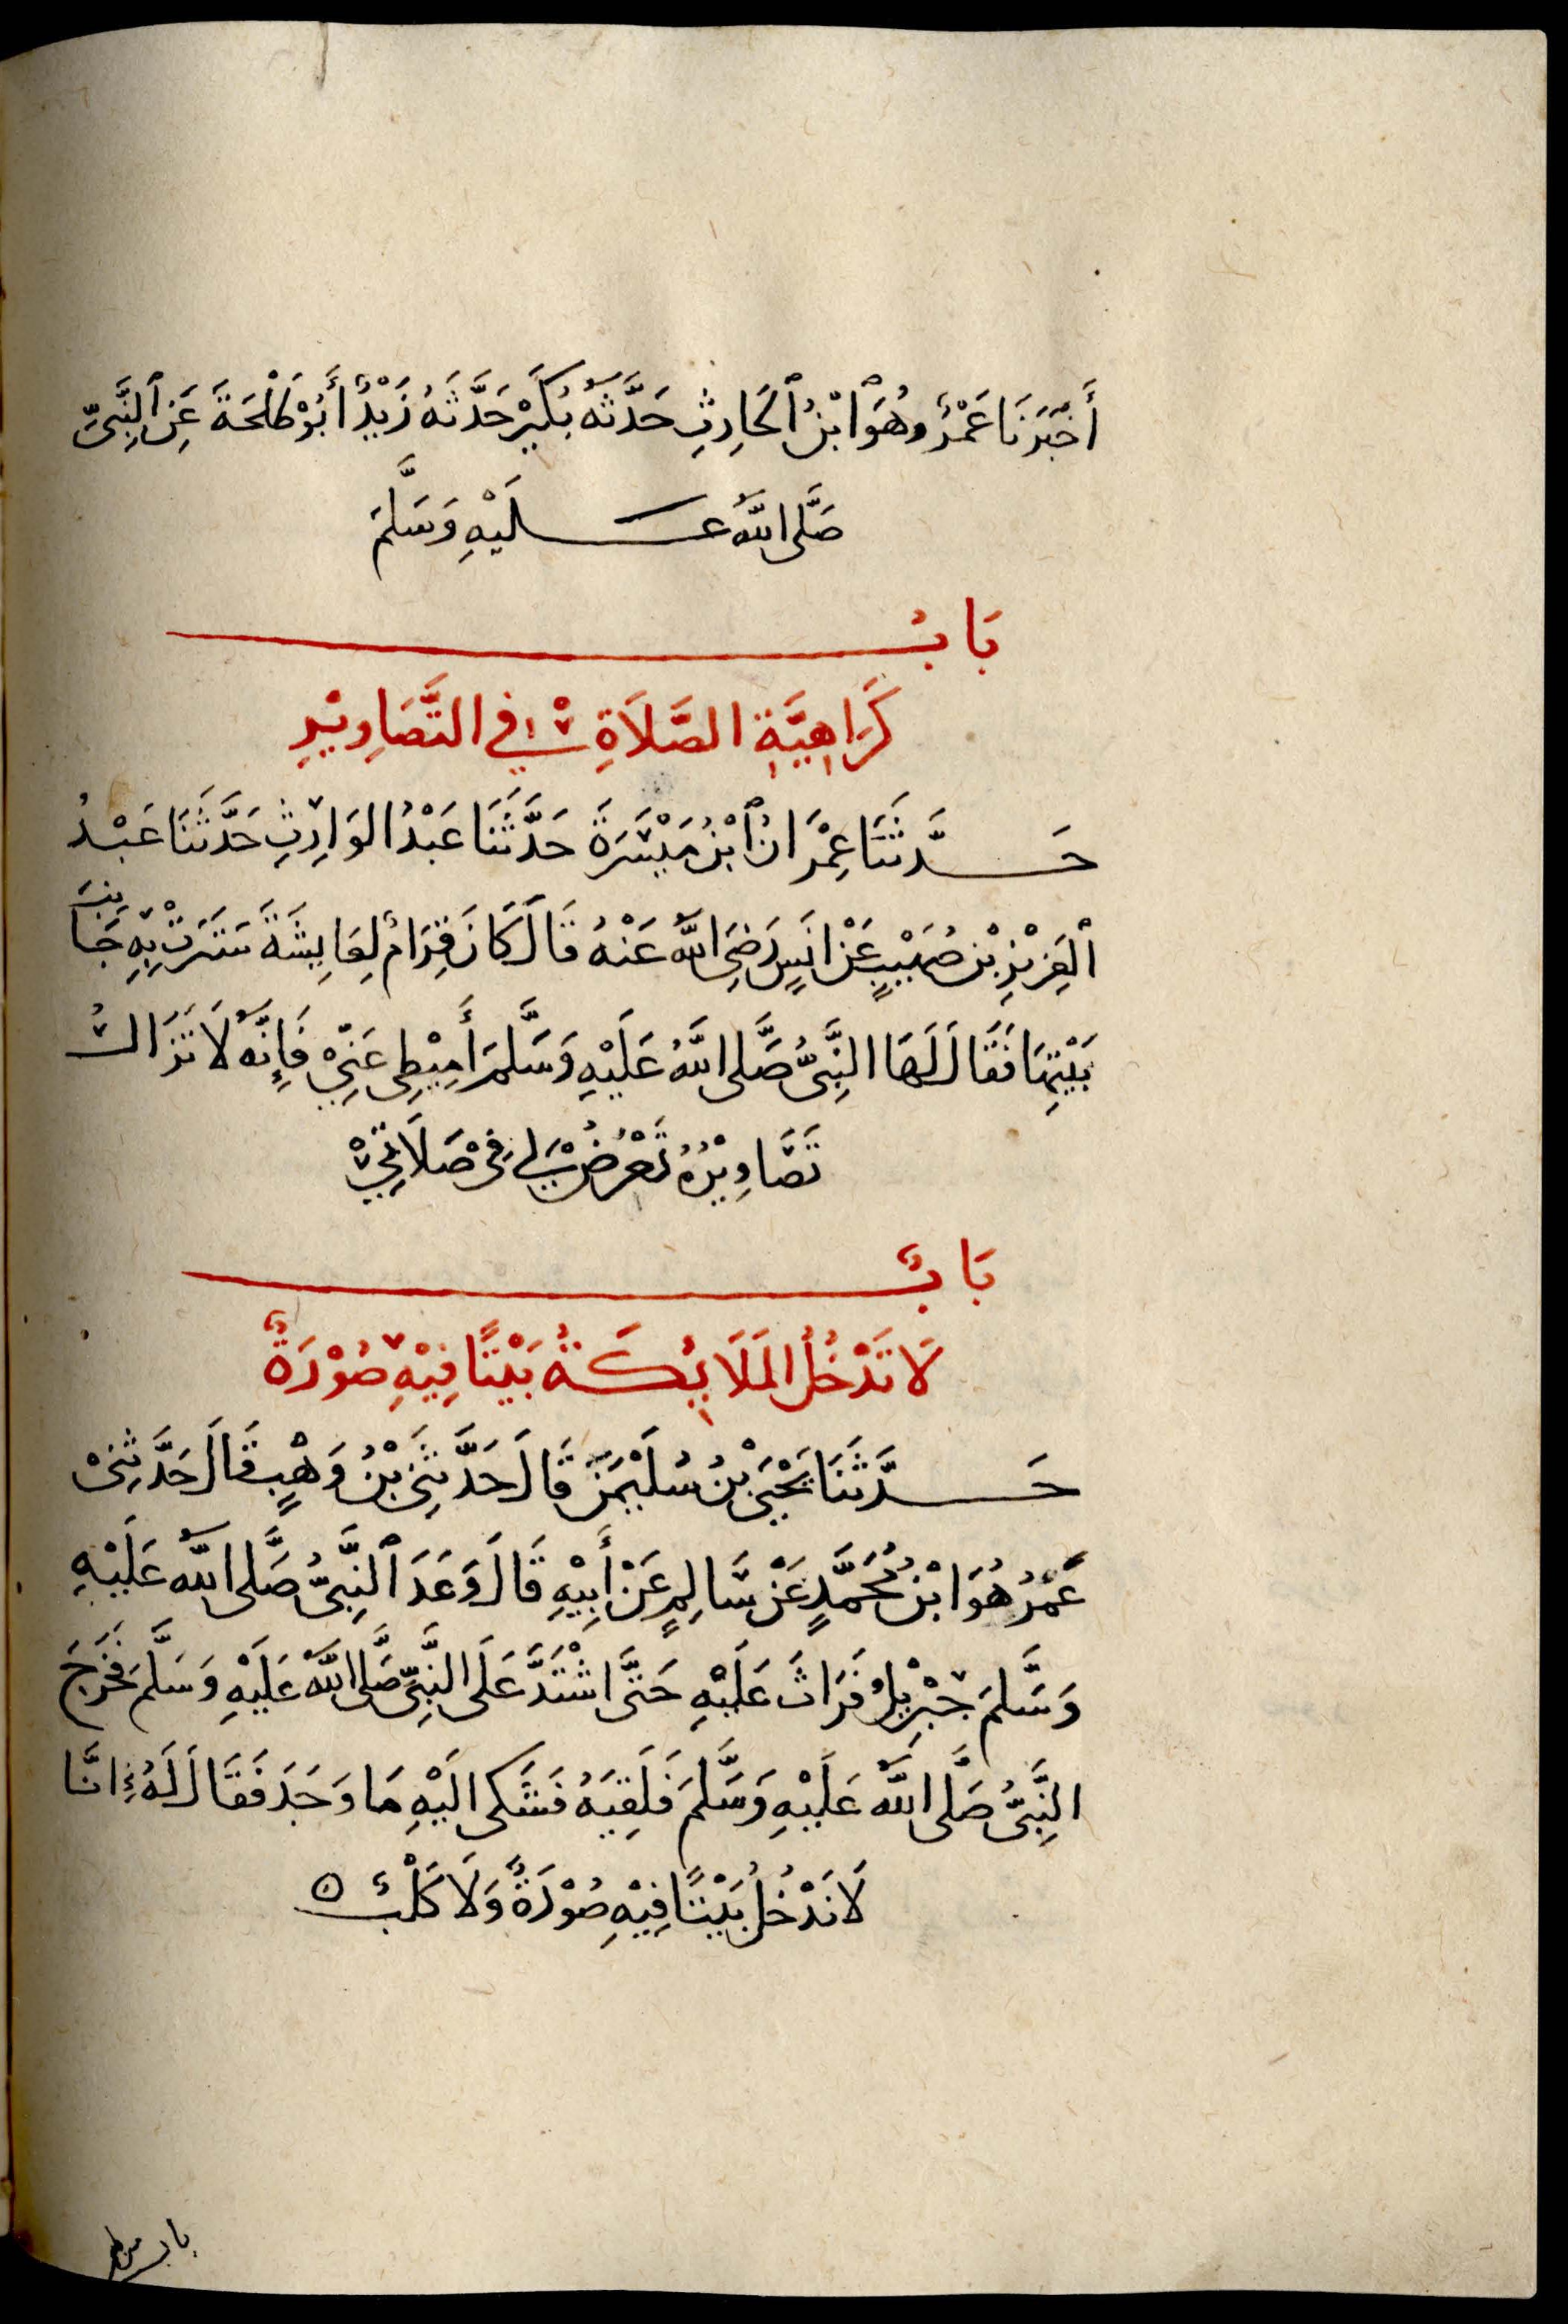 أَخْبَرَنَا عَمْرٌو هُوَ ٱبْنُ ٱلْحَارِثِ حَدَّثَهُ بُكَيْرٌ حَدَّثَهُ زَيْدٌ أَبُوْ طَلْحَةَ عَنِ ٱلنَّبِيِّ
صَلَّى اللَّهُ عَلَيْهِ وَسَلَّمَ
بَابُ
كَرَاهِيَّةِ الصَّلَاةِ فِي التَّصَاوِيْرِ
حَدَّثَنَا عِمْرَانُ ٱبْنُ مَيْسَرَةَ حَدَّثَنَا عَبْدُ الوَارِثِ حَدَّثَنَا عَبْدُ
ٱلْعَزِيْزِ بْنِ صُهَيْبٍ عَنْ انَسٍ رَضِيَ اللَّهُ عَنْهُ قَالَ كَانَ قِرَامٌ لِعَايِشَةَ سَتَرَتْ بِهِ جَانِبَ
بَيْتِهَا فَقَالَ لَهَا النَّبِيُّ صَلَّى اللَّهُ عَلَيْهِ وَسَلَّمَ أَمِيْطِى عَنِّيْ فَإِنَّهُ لَا تَزَالُ
تَصَاوِيْرُهُ تَعْرُضُ لِي فِيْ صَلَاتِيْ
بَابٌ
لَا تَدْخُلُ المَلَايِكَةُ بَيْتًا فِيْهِ صُوْرَةٌ
حَدَّثَنَا يَحْيَى بْنُ سُلَيْمٰنَ قَالَ حَدَّثَنِى بْنُ وَهْبٍ قَالَ حَدَّثَنِىْ
عُمَرُ هُوَ ابْنُ مُحَمَّدٍ عَنْ سَالِمٍ عَنْ أَبِيْهِ قَالَ وَعَدَ ٱلنَّبِيَّ صَلَّى اللَّهُ عَلَيْهِ
وَسَلَّمَ جِبْرِيْلُ فَرَاثَ عَلَيْهِ حَتَّى اشْتَدَّ عَلَى النَّبِيِّ صَلَّى اللَّهُ عَلَيْهِ وَسَلَّمَ فَخَرَجَ
النَّبِيُّ صَلَّى اللَّهُ عَلَيْهِ وَسَلَّمَ فَلَقِيَهُ فَشَكَى الَيْهِ مَا وَجَدَ فَقَالَ لَهُ إِنَّا
لَا نَدْخُلُ بَيْتًا فِيْهِ صُوْرَةٌ وَلَا كَلْبٌ ه
باب من لم